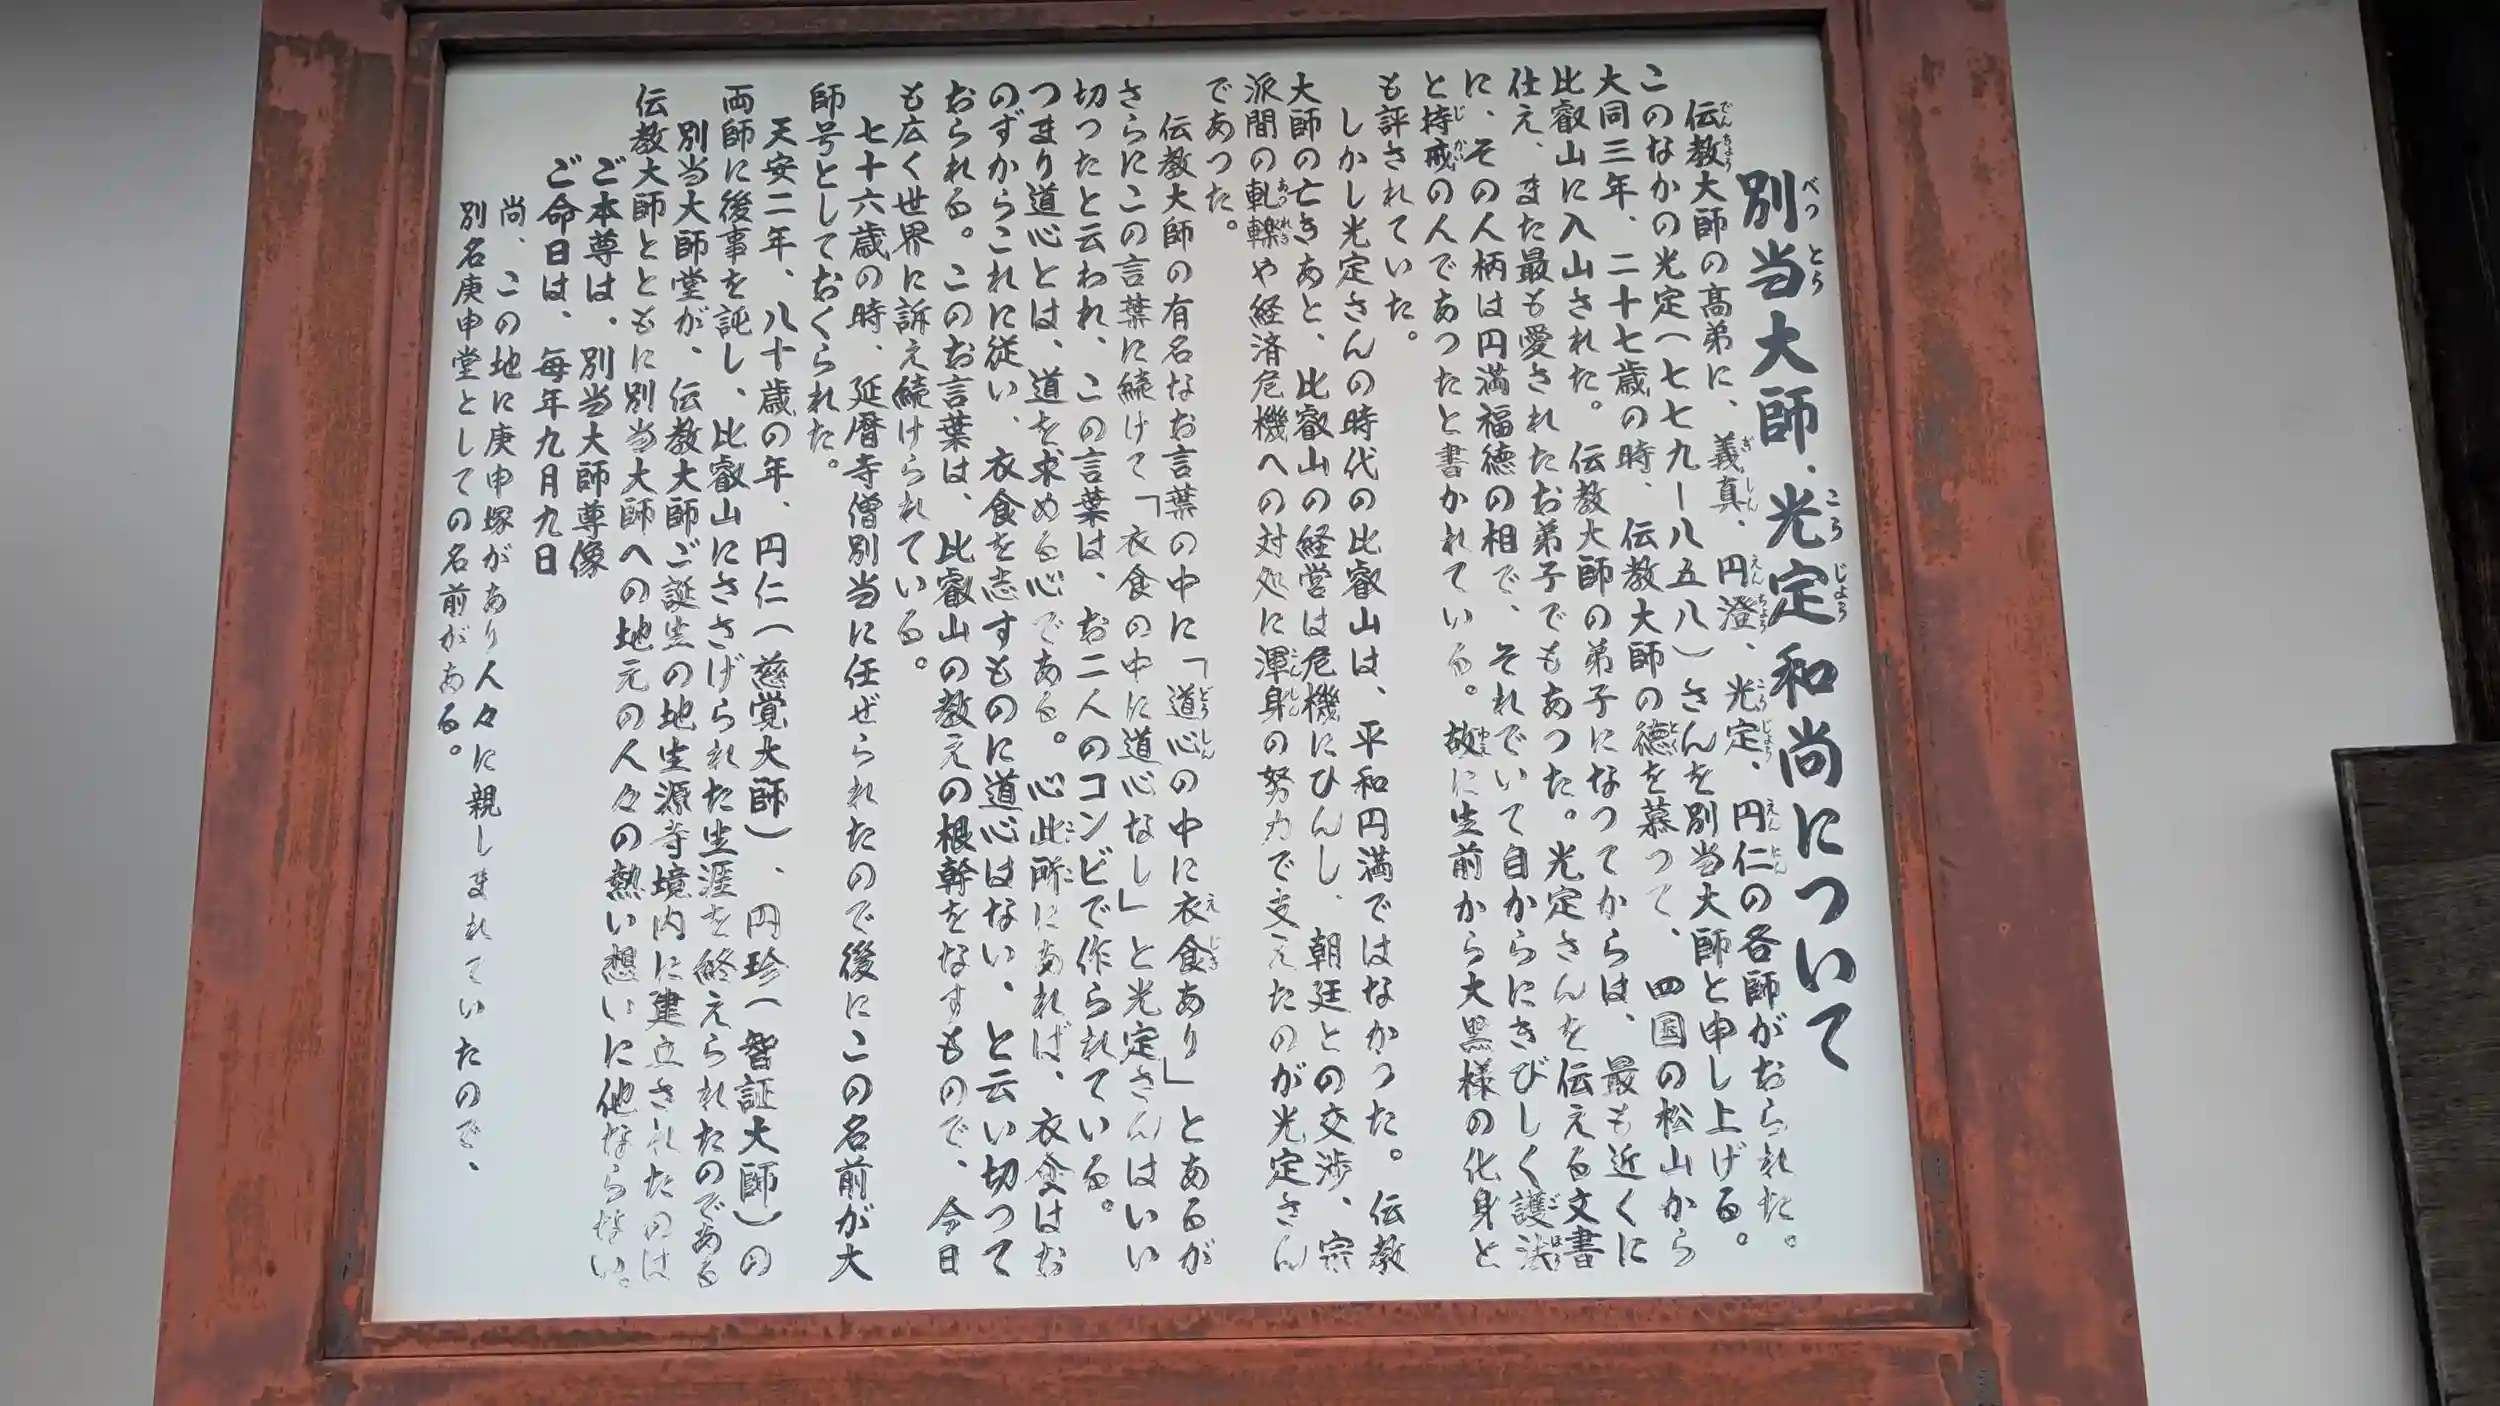 別当大師・光定和尚について
伝教大師の高弟に、義真、円澄、光定、円仁の各師がおられた。
このなかの光定(七七九ー八五八)さんを別当大師と申し上げる。
大同三年、二十七歳の時、伝教大師の徳を慕って、四国の松山から
比叡山に入山された。伝教大師の弟子になってからは、最も近くに
仕え、また最も愛されたお弟子でもあった。光定さんを伝える文書
に、その人柄は円満福徳の相で、それでいて自からにきびしく護法
と持戒の人であったと書かれている。故に生前から大黒様の化身と
も評されていた。
しかし光定さんの時代の比叡山は、平和円満ではなかった。伝教
大師の亡きあと、比叡山の経営は危機にひんし、朝廷との交渉、宗
派間の軋轢や経済危機への対処に渾身の努力で支えたのが光定さん
であった。
伝教大師の有名なお言葉の中に「道心の中に衣食あり」とあるが
さらにこの言葉に続けて「衣食の中に道心なし」と光定さんはいい
切ったと云われ、この言葉は、お二人のコンビで作られている。
つまり道心とは、道を求める心である。心此所にあれば、衣食はお
のずからこれに従い、衣食を志すものに道心はない、と云い切って
おられる。このお言葉は、比叡山の教えの根幹をなすもので、今日
も広く世界に訴え続けられている。
七十六歳の時、延暦寺僧別当に任ぜられたので後にこの名前が大
師号としておくられた。
天安二年、八十歳の年、円仁(慈覚大師)、円珍(智証大師)の
両師に後事を託し、比叡山にささげられた生涯を終えられたのである
別当大師堂が、伝教大師ご誕生の地生源寺境内に建立されたのは
伝教大師とともに別当大師への地元の人々の熱い想いに他ならない。
ご本尊は、別当大師尊像
ご命日は、毎年九月九日
尚、この地に庚申塚があり人々に親しまれていたので、
別名庚申堂としての名前がある。